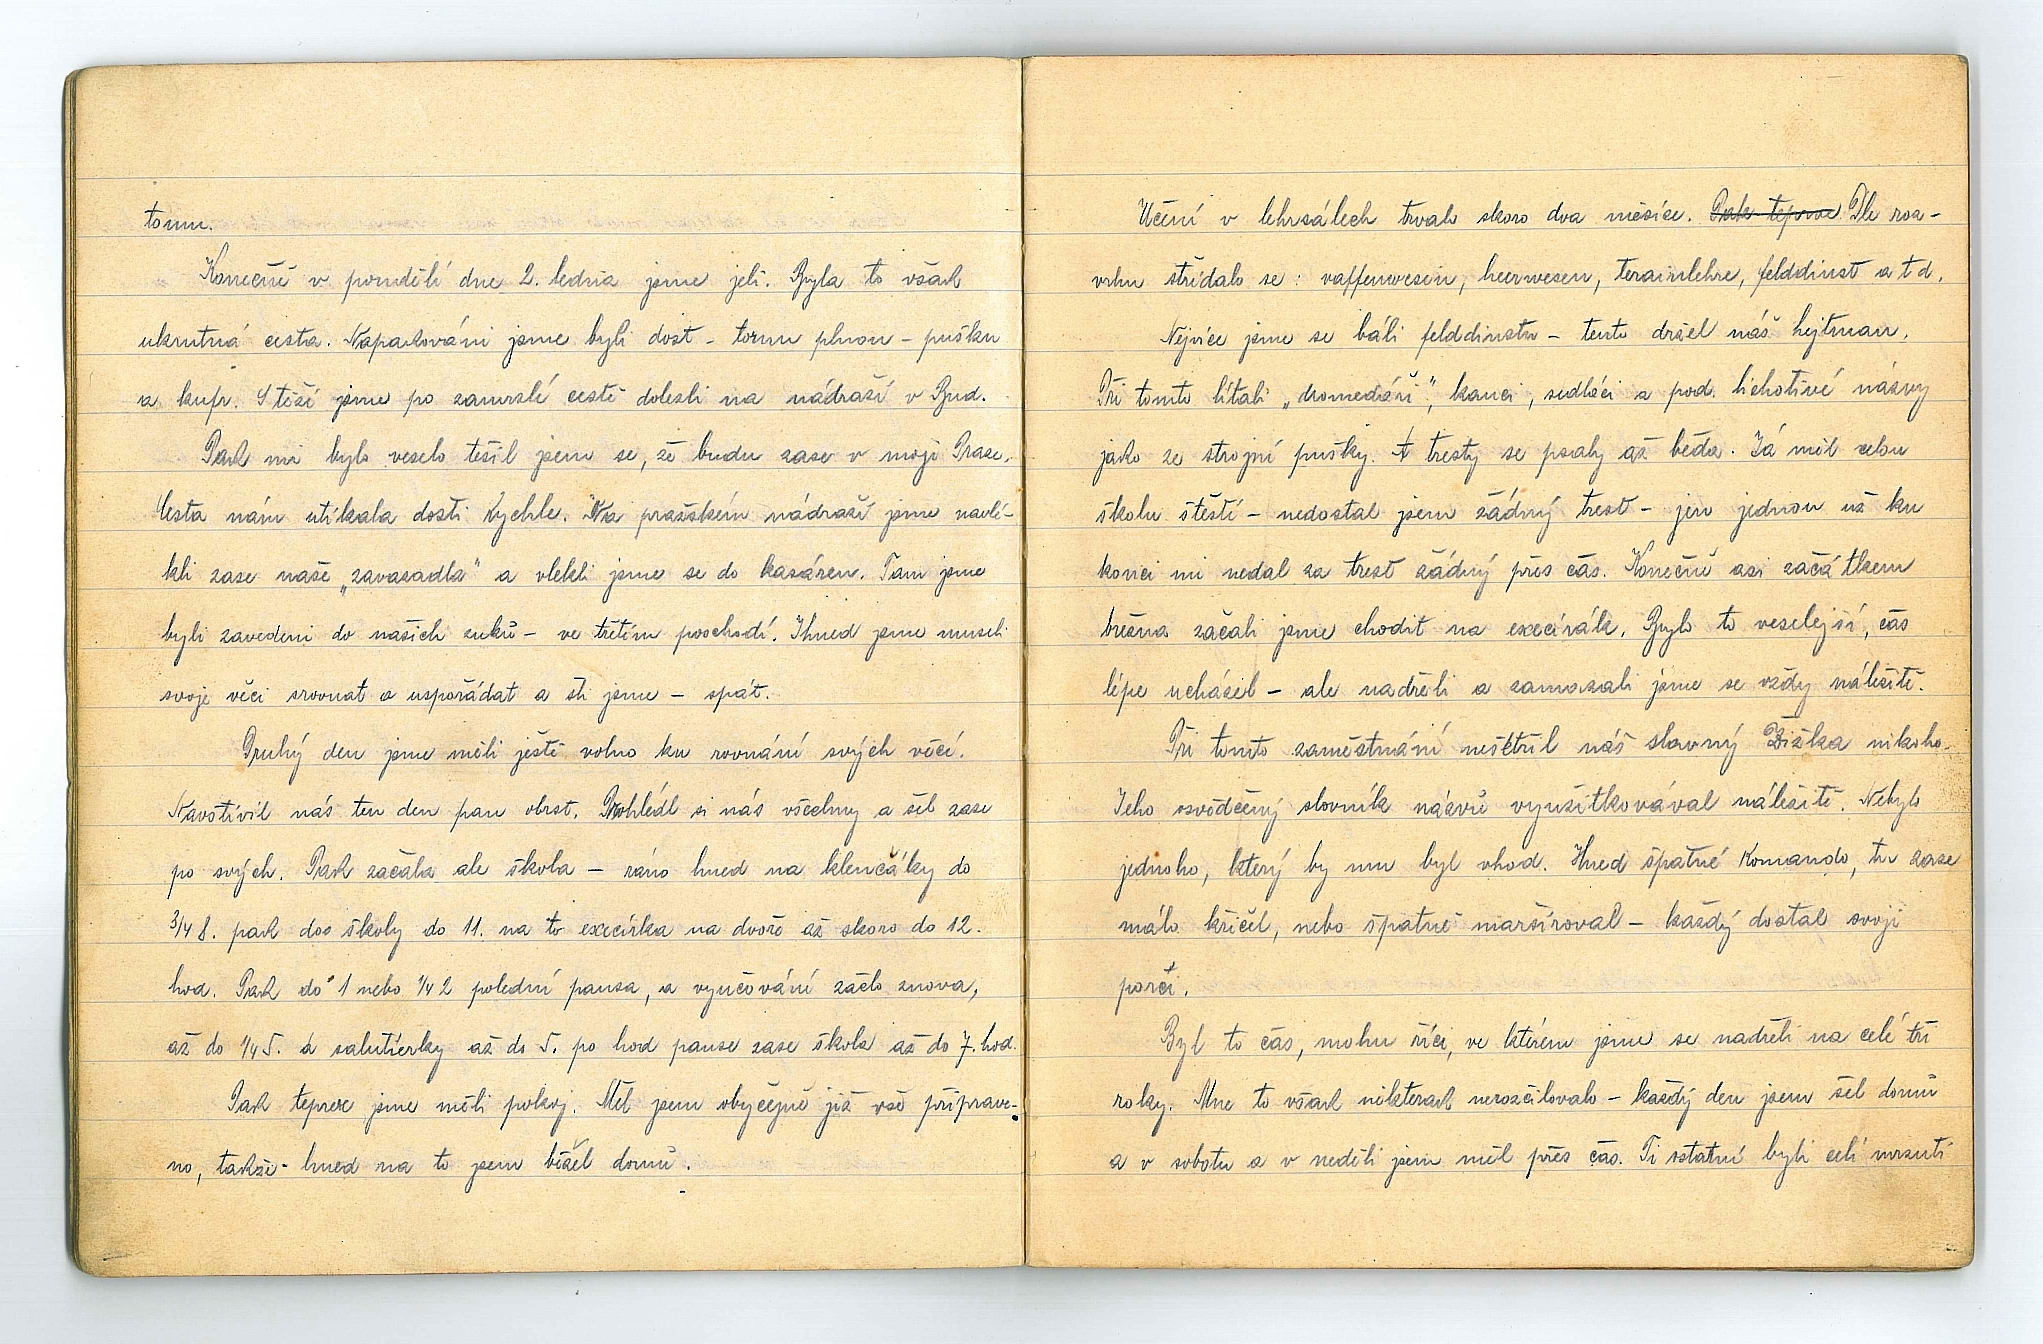 tomu.
Konečně v pondělí dne 2. ledna jsme jeli. Byla to však
ukrutná cesta. Napakováni jsme byli dost - tornu plnou - pušku
a kufr. Stěží jsme po zamrzlé cestě dolezli na nádraží v Bud.
Pak mi bylo veselo těšil jsem se, že budu zase v mojí Praze.
Cesta nám utíkala dosti rychle. Na pražském nádraží jsme navlé-
kli zase naše „zavazadla" a vlekli jsme se do kasáren. Tam jsme
byli zavedeni do našich cuků - ve třetím poschodí. Ihned jsme museli
svoje věci srovnat a uspořádat a šli jsme - spát.
Druhý den jsme měli ještě volno ku rovnání svých věcí.
Navštívil nás ten den pan obrst. Prohlédl si nás všechny a šel zase
po svých. Pak začala ale škola - ráno hned na klenčáky do
3/4 8. pak do školy do 11. na to execírka na dvoře až skoro do 12.
hod. Pak do 1 nebo 1/4 2 polední pausa, a vyučování začlo znova,
až do 1/4 5. a salutierky až do 5. po hod pause zase škola až do 7. hod.
Pak teprve jsme měli pokoj. Měl jsem obyčejně již vše připrave-
no, takže - hned na to jsem běžel domů.
Učení v lehrsálech trvalo skoro dva měsíce. Pak teprve Dle roz-
vrhu střídalo se: vaffenwesein, heerwesen, terainlehre, felddinst a t d.
Nejvíce jsme se báli felddinstu - tento držel náš hejtman.
Při tomto lítali „dromedáři", kanci, sedláci a pod. lichotivé názvy
jako ze strojní pušky. A tresty se psaly až běda. Já měl celou
školu štěstí - nedostal jsem žádný trest - jen jednou už ku
konci mi nedal za trest žádný přes čas. Konečně asi začátkem
března začali jsme chodit na execírák. Bylo to veselejší, čas
lépe ucházel - ale nadřeli a zamazali jsme se vždy náležitě.
Při tomto zaměstnání nešetřil náš slavný Žižka nikoho.
Jeho osvědčený slovník názvů využitkovával náležitě. Nebylo
jednoho, který by mu byl vhod. Hned špatné komando, tu zase
málo křičel, nebo špatně marširoval - každý dostal svoji
porci.
Byl to čas, mohu říci, ve kterém jsme se nadřeli na celé tři
roky. Mne to však nikterak nerozčilovalo - každý den jsem šel domů
a v sobotu a v neděli jsem měl přes čas. Ti ostatní byli celí mrzutí